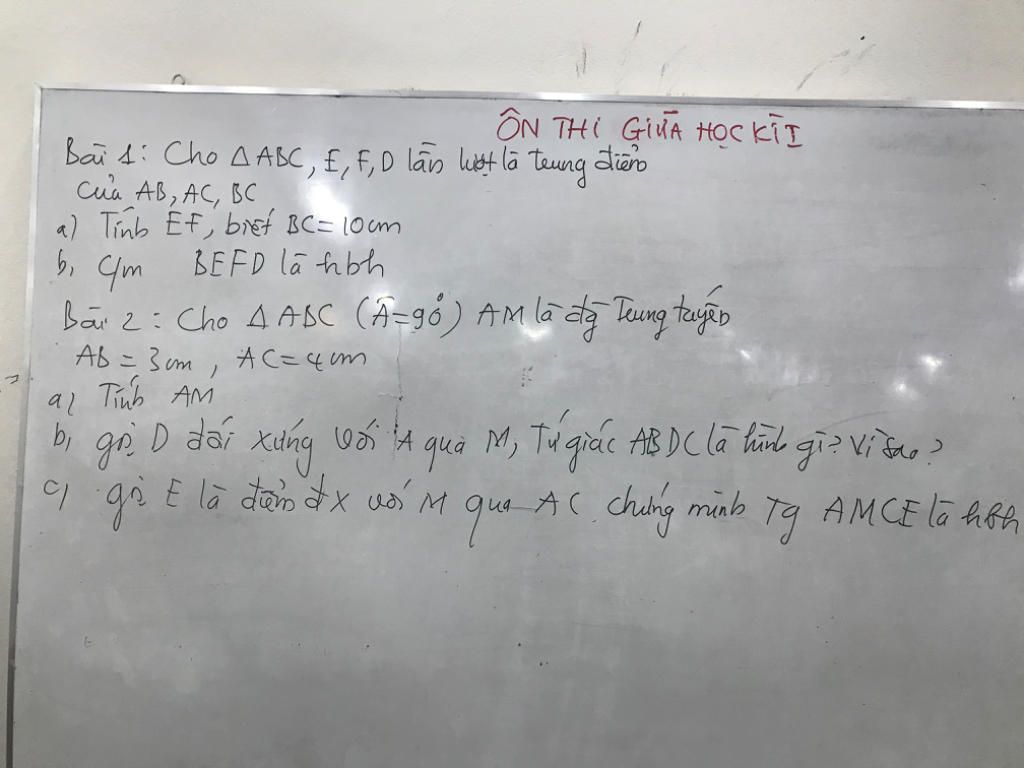 ÔN THI GIỮA HỌC KÌ I
Bài 1: Cho △ABC, E, F, D lần lượt là trung điểm
của AB, AC, BC
a) Tính EF, biết BC = 10cm
b, C/m BEFD là hbh
Bài 2: Cho △ABC (Â=90°) AM là đg Trung tuyến
AB = 3cm, AC = 4cm
a, Tính AM
b, gọi D đối xứng với A qua M, Tứ giác ABDC là hình gì? Vì sao?
c, gọi E là điểm đx với M qua AC. chứng minh Tg AMCE là hbh